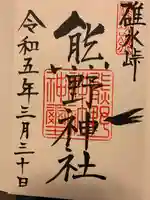 碓氷峠
熊野神社
令和五年三月三十日